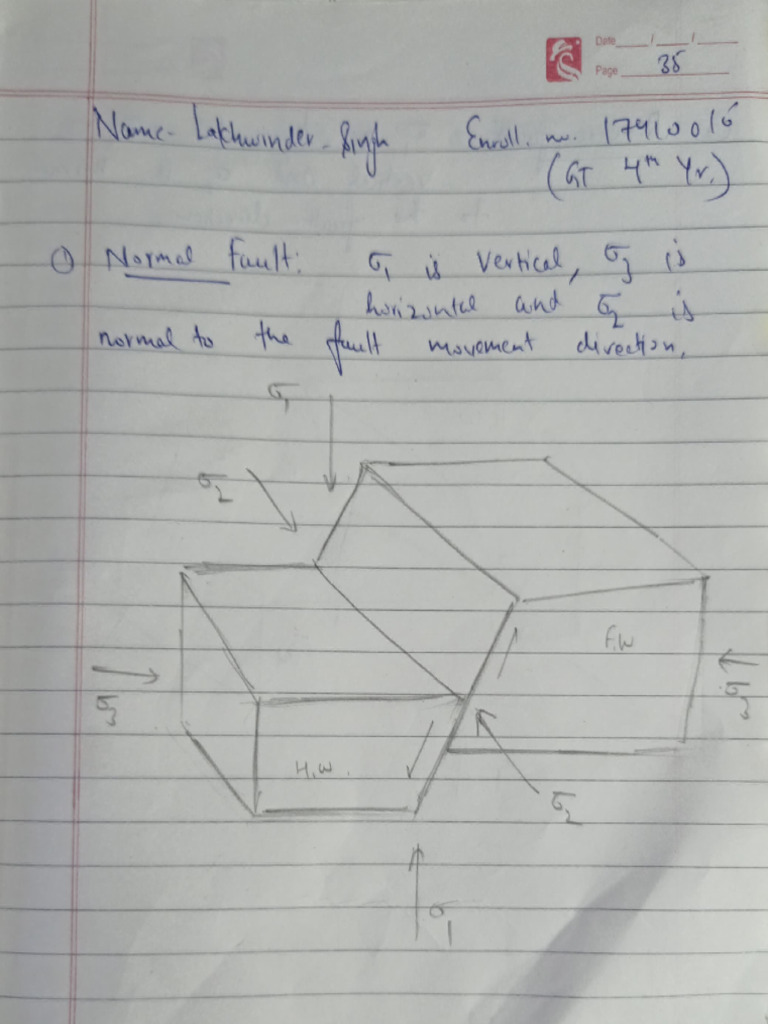 Date / /
Page 35
Name- Lakhwinder Singh Enroll. no. 17410016
(GT 4th Yr.)
① Normal Fault: σ1 is vertical, σ3 is
horizontal and σ2 is
normal to the fault movement direction.
σ1
σ2
F.W
σ3
σ3
H.W.
σ2
σ1